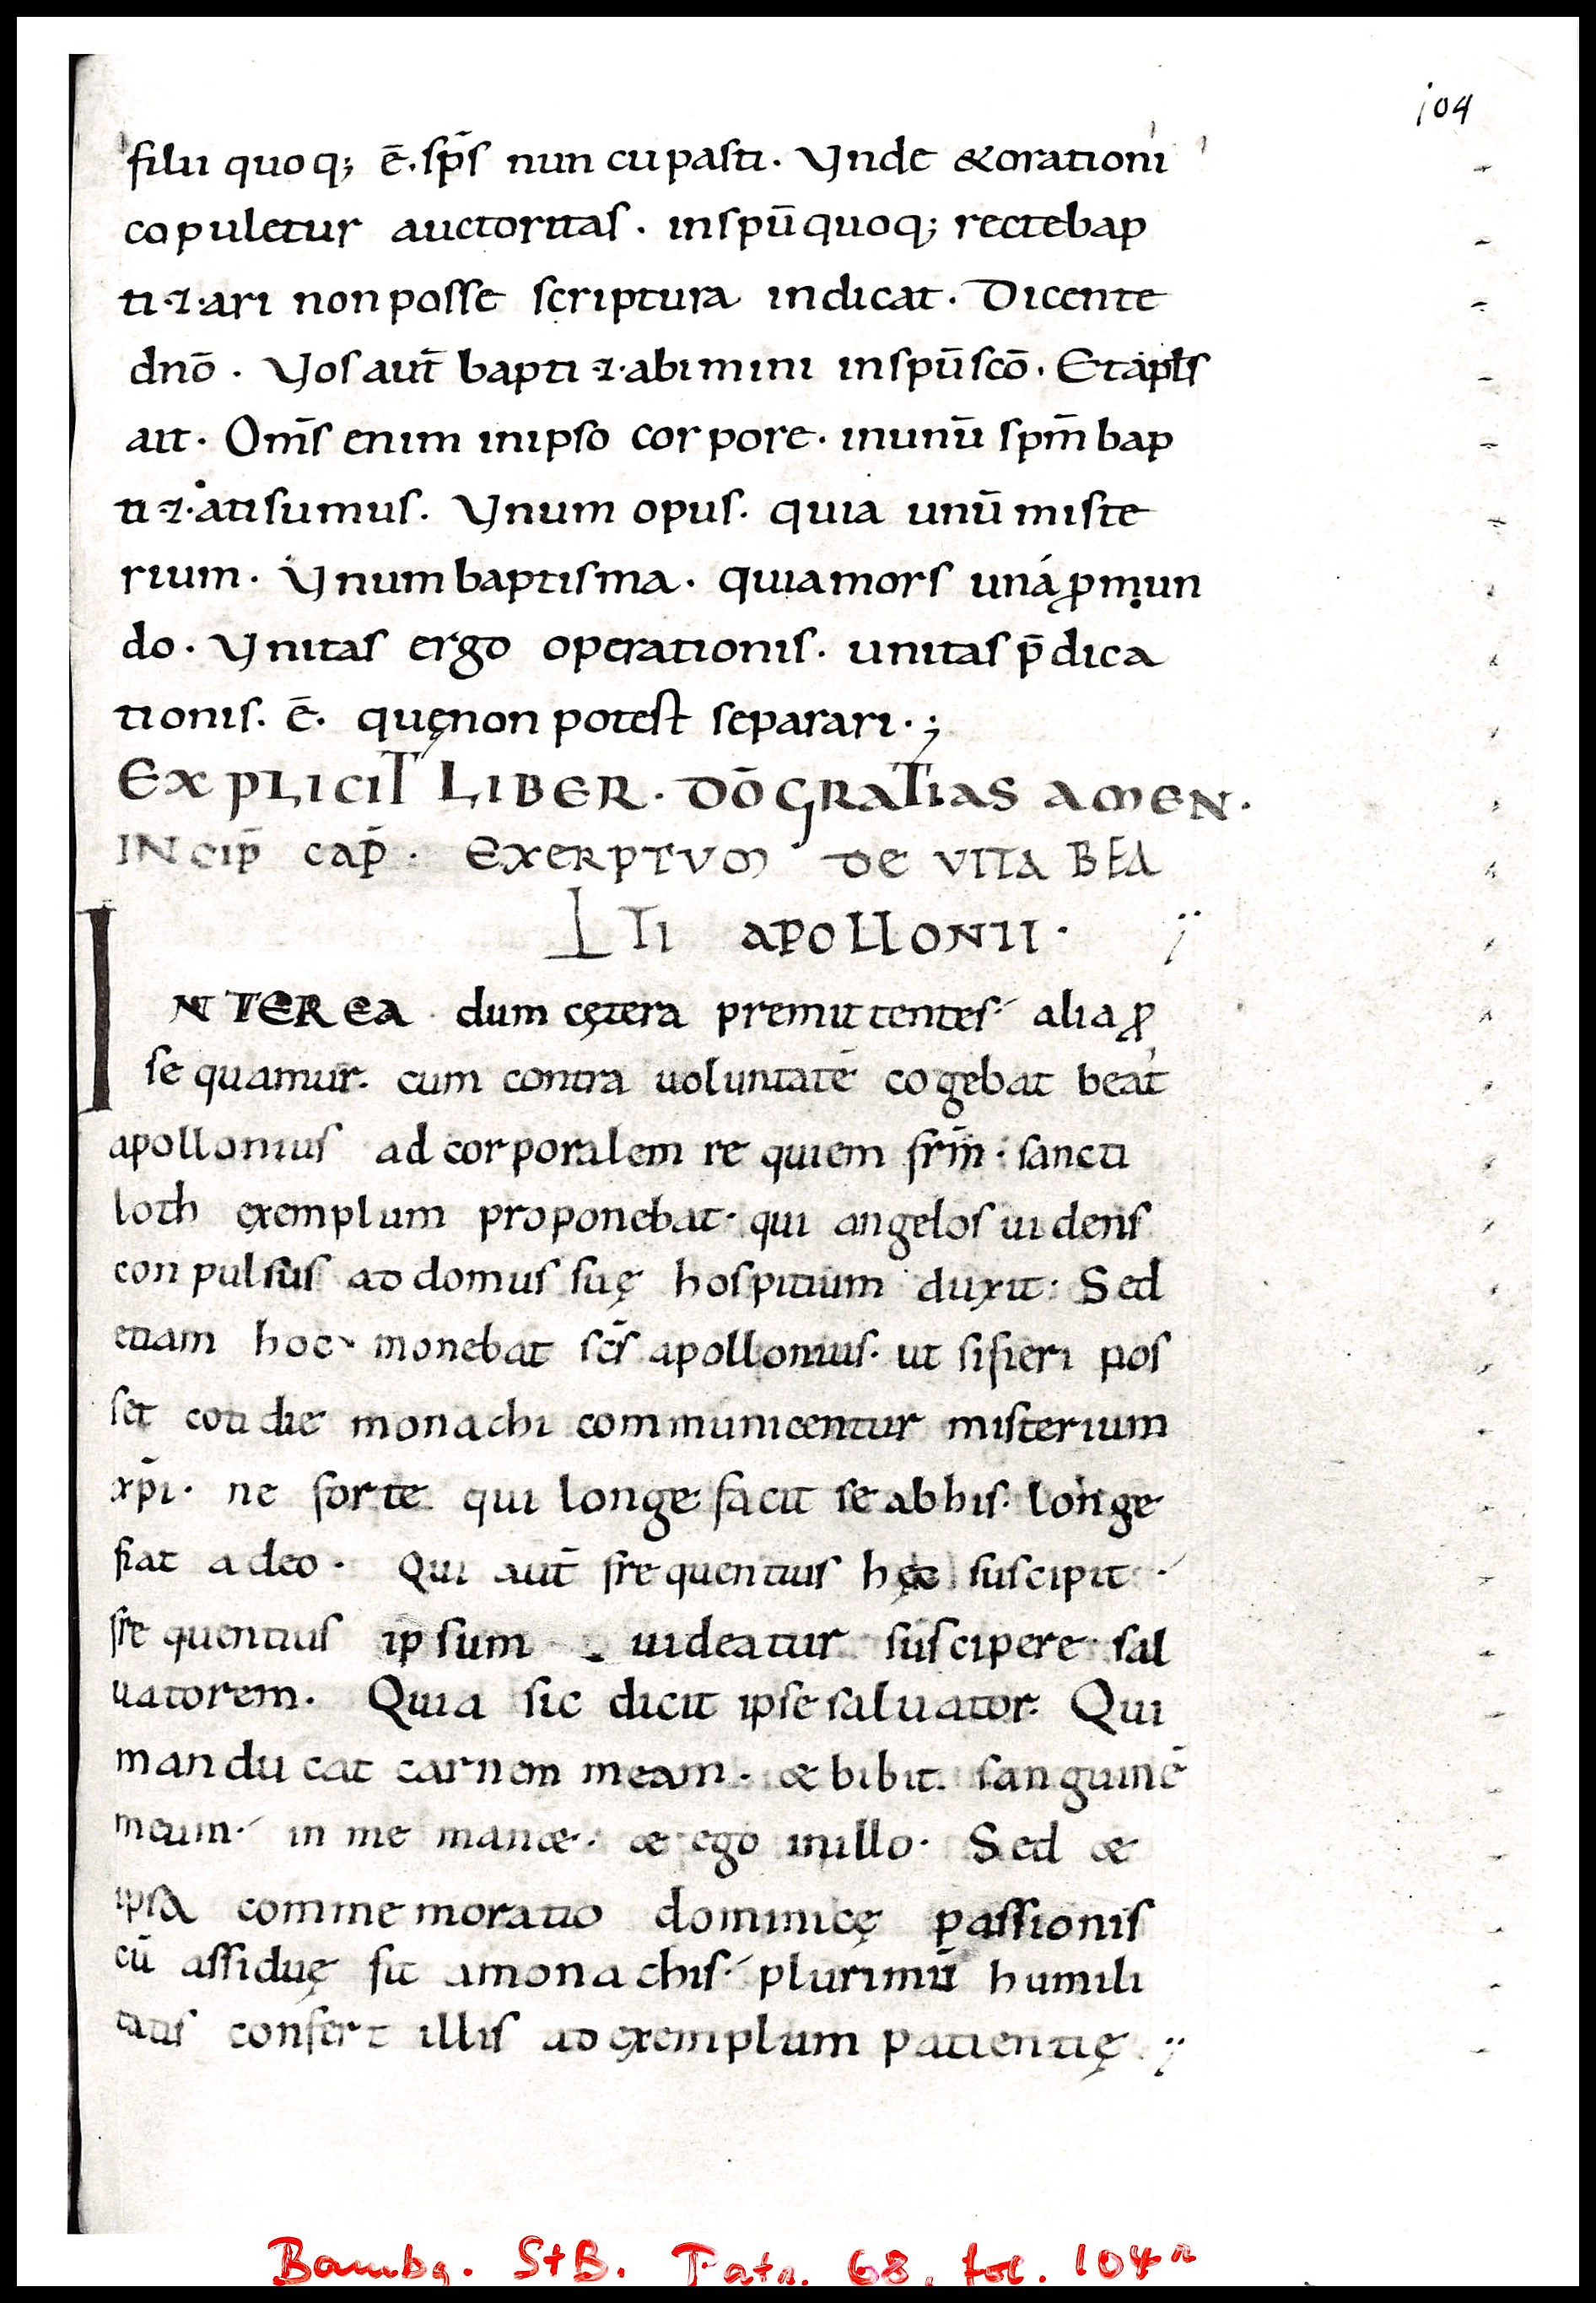 104
filii quoq; ē. sp̄s nuncupasti. Vnde & orationi
copuletur auctoritas. in spū quoq; recte bap
tizari non posse scriptura indicat. Dicente
dn̄o. Vos aut̄ baptizabimini in spū sc̄o. Et apl̄s
ait. Om̄s enim in ipso corpore. in unū spm̄ bap
tizati sumus. Vnum opus. quia unū miste
rium. Vnum baptisma. quia mors una ꝓ mun
do. Vnitas ergo operationis. unitas p̄dica
tionis. ē. quę non potest separari.;
EXPLICIT LIBER. DŌ GRATIAS AMEN.
INCIP̄ CAP̄. EXERPTUM DE VITA BEA
TI APOLLONII.
INTEREA dum cętera premittentes alia ꝓ
sequamur. cum contra uoluntatē cogebat beat̓
apollonius ad corporalem requiem frm̄. sancti
loth exemplum proponebat. qui angelos uidens
conpulsus ad domus suę hospitium duxit. Sed
etiam hoc monebat sc̄s apollonius. ut si fieri pos
set cotidie monachi communicentur misterium
xp̄i. ne forte qui longe facit se ab his. longe
fiat a deo. Qui aut̄ frequentius hęc suscipit.
frequentius ipsum uideatur suscipere sal
uatorem. Quia sic dicit ipse saluator. Qui
manducat carnem meam. & bibit sanguinē
meum. in me man&. & ego in illo. Sed &
ipsa commemoratio dominicę passionis
cū assiduę fit a monachis. plurimū humili
tatis confert illis ad exemplum patientię.
Bambg. StB. Patr. 68, fol. 104r